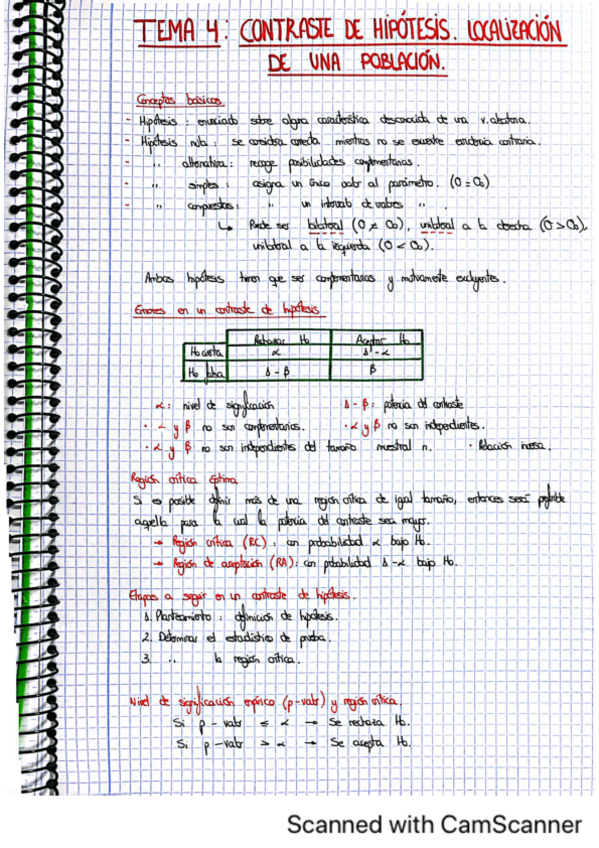 TEMA 4: CONTRASTE DE HIPÓTESIS. LOCALIZACIÓN
DE UNA POBLACIÓN.
Conceptos básicos
- Hipótesis : enunciado sobre alguna característica desconocida de una v. aleatoria.
- Hipótesis nula : se considera correcta mientras no se muestre evidencia contraria.
- " alternativa : recoge posibilidades complementarias.
- " simples : asigna un único valor al parámetro. (θ = θ₀)
- " compuestas : " un intervalo de valores " .
↳ Puede ser bilateral (θ ≠ θ₀), unilateral a la derecha (θ > θ₀),
unilateral a la izquierda (θ < θ₀).
Ambas hipótesis tienen que ser complementarias y mutuamente excluyentes.
Errores en un contraste de hipótesis
Rechazar H₀ Aceptar H₀
H₀ cierta α 1 - α
H₀ falsa 1 - β β
α : nivel de significación 1 - β : potencia del contraste
· α y β no son complementarios. · α y β no son independientes.
· α y β no son independientes del tamaño muestral n. · Relación inversa.
Región crítica óptima
Si es posible definir más de una región crítica de igual tamaño, entonces será preferible
aquella para la cual la potencia del contraste sea mayor.
→ Región crítica (RC) : con probabilidad α bajo H₀.
→ Región de aceptación (RA) : con probabilidad 1 - α bajo H₀.
Etapas a seguir en un contraste de hipótesis.
1. Planteamiento : definición de hipótesis.
2. Determinar el estadístico de prueba.
3. " la región crítica.
Nivel de significación empírico (p-valor) y región crítica.
Si p - valor ≤ α → Se rechaza H₀.
Si p - valor > α → Se acepta H₀.
Scanned with CamScanner